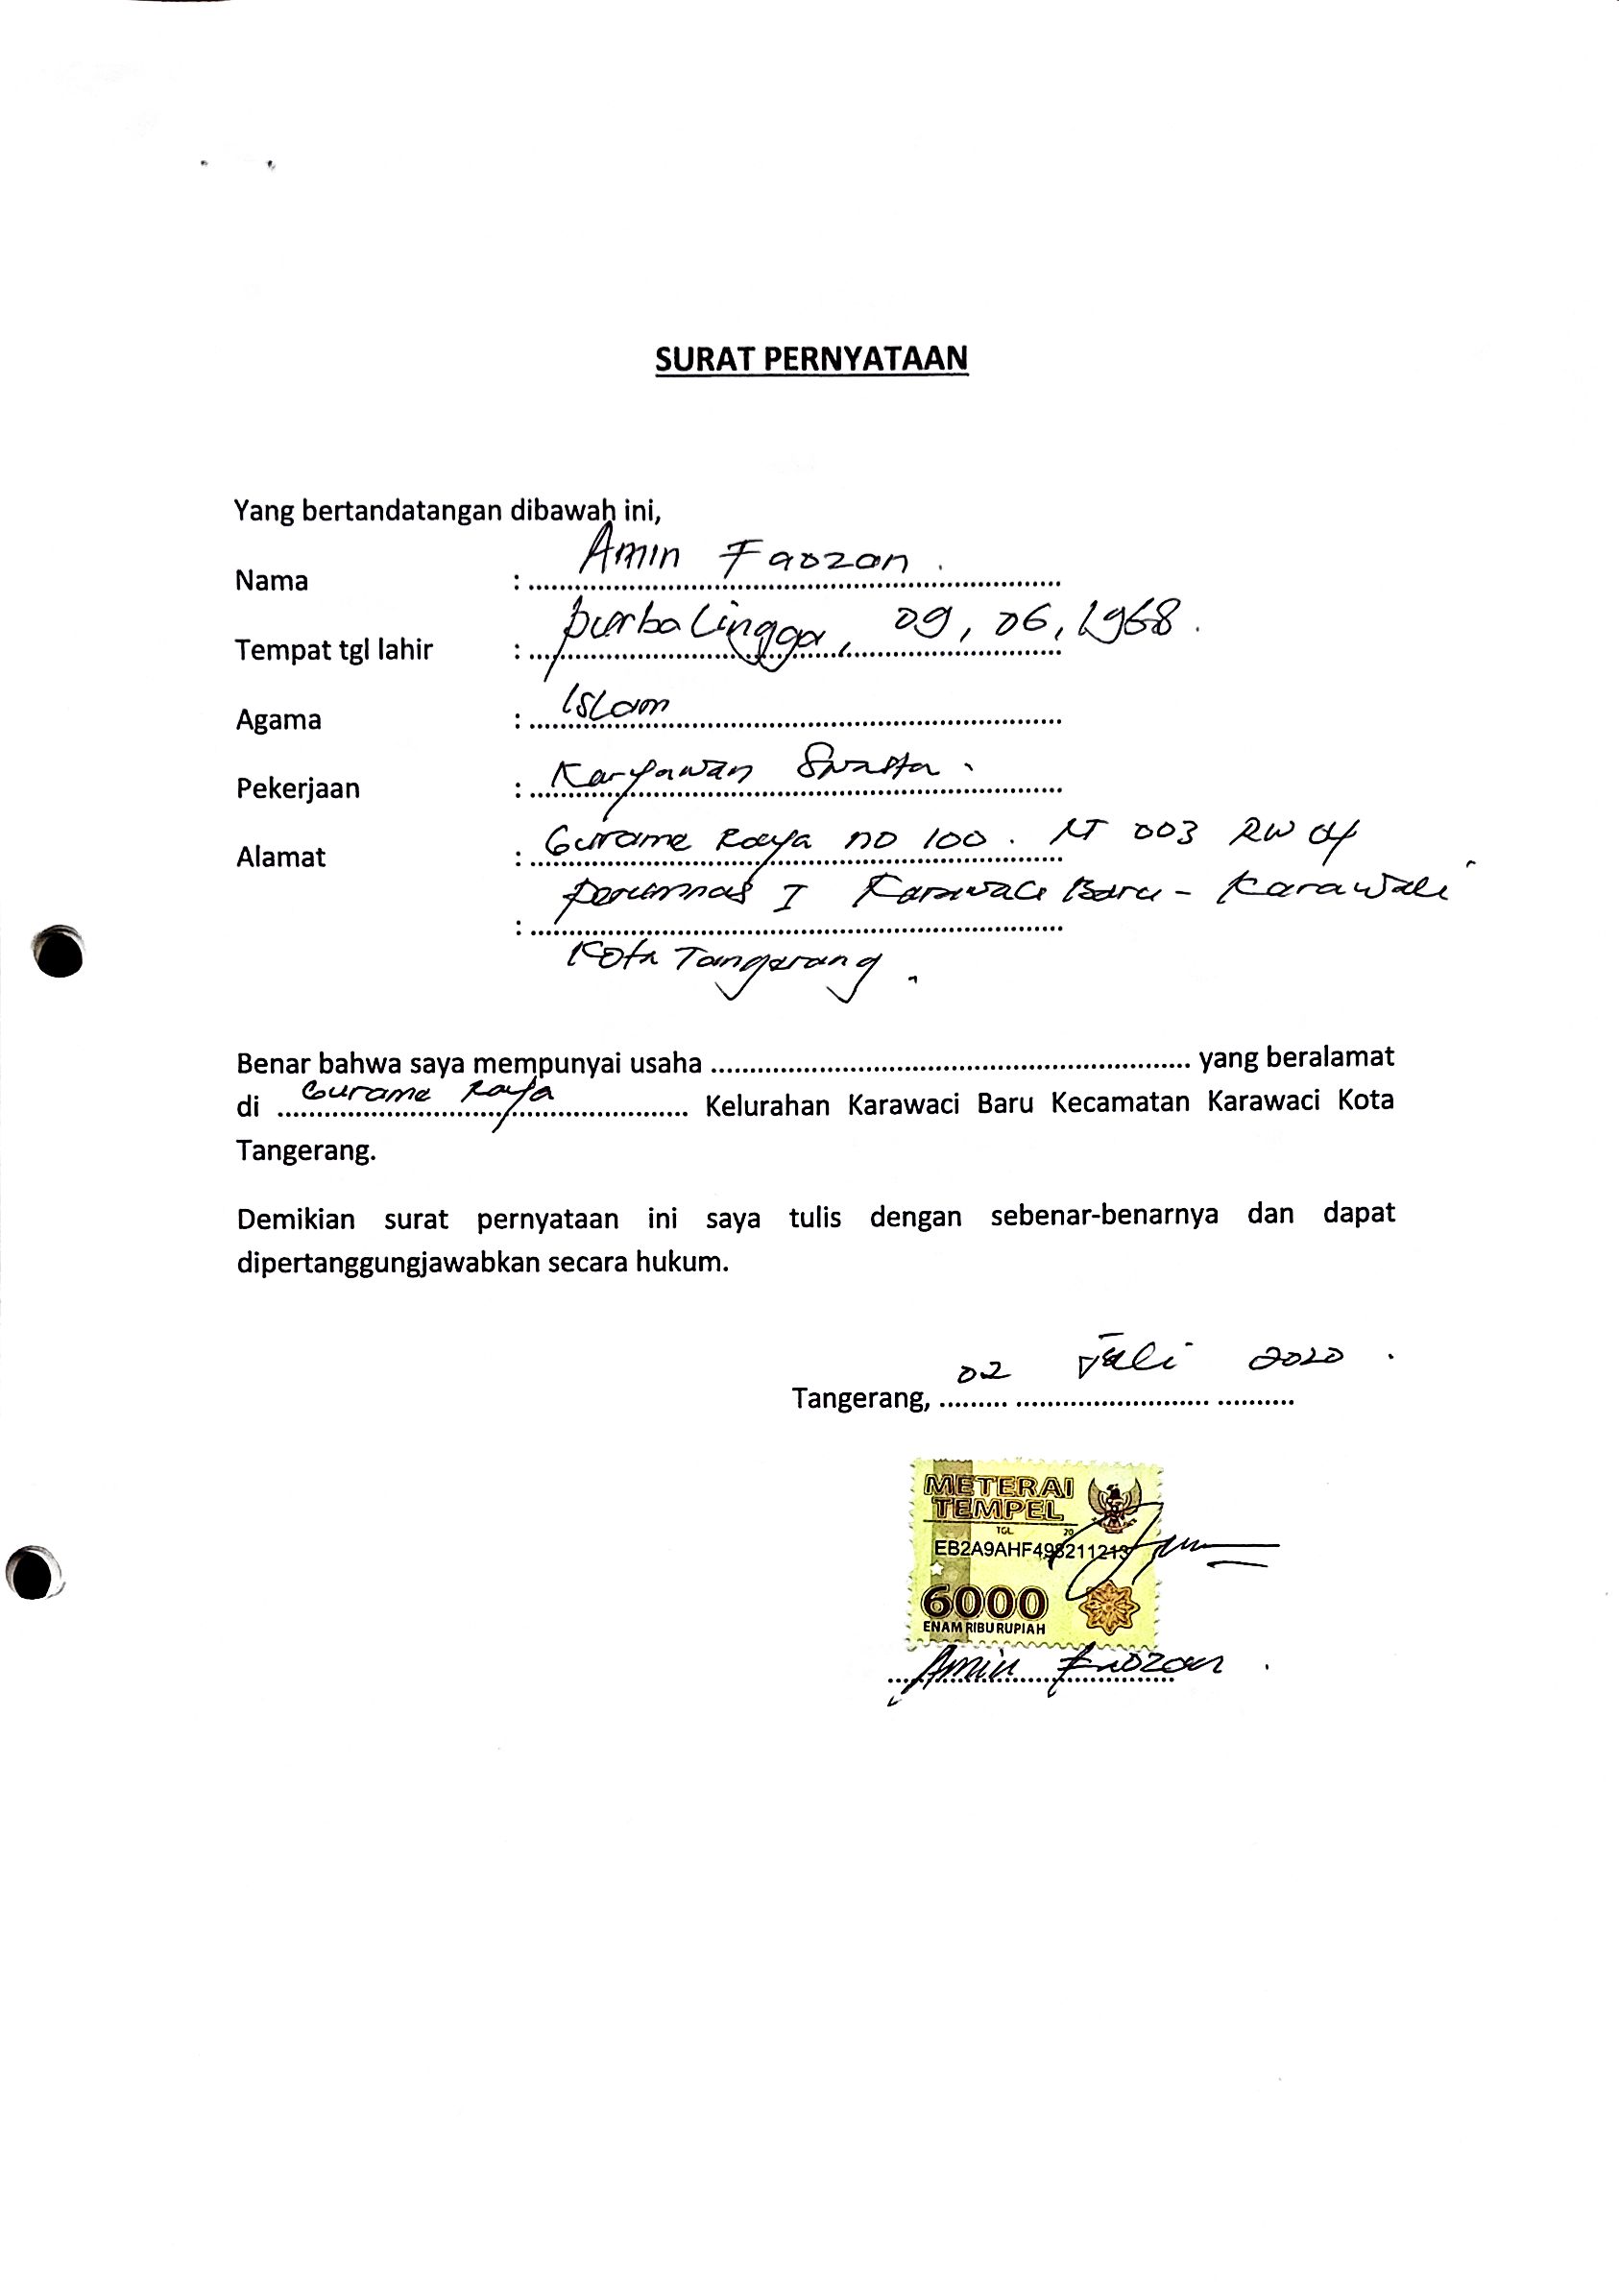 SURAT PERNYATAAN
Yang bertandatangan dibawah ini,
Nama : Amin Faozan.
Tempat tgl lahir : purbaLingga, 09, 06, 1968.
Agama : Islam
Pekerjaan : Karyawan Swasta.
Alamat : Gurame Raya no 100. RT 003 RW 04
: perumnas I Karawaci Baru - Karawaci
Kota Tangerang.
Benar bahwa saya mempunyai usaha ........ yang beralamat
di Gurame Raya Kelurahan Karawaci Baru Kecamatan Karawaci Kota
Tangerang.
Demikian surat pernyataan ini saya tulis dengan sebenar-benarnya dan dapat
dipertanggungjawabkan secara hukum.
Tangerang, 02 Juli 2020.
METERAI
TEMPEL
TGL 20
EB2A9AHF498211213
6000
ENAM RIBU RUPIAH
Amin Faozan.